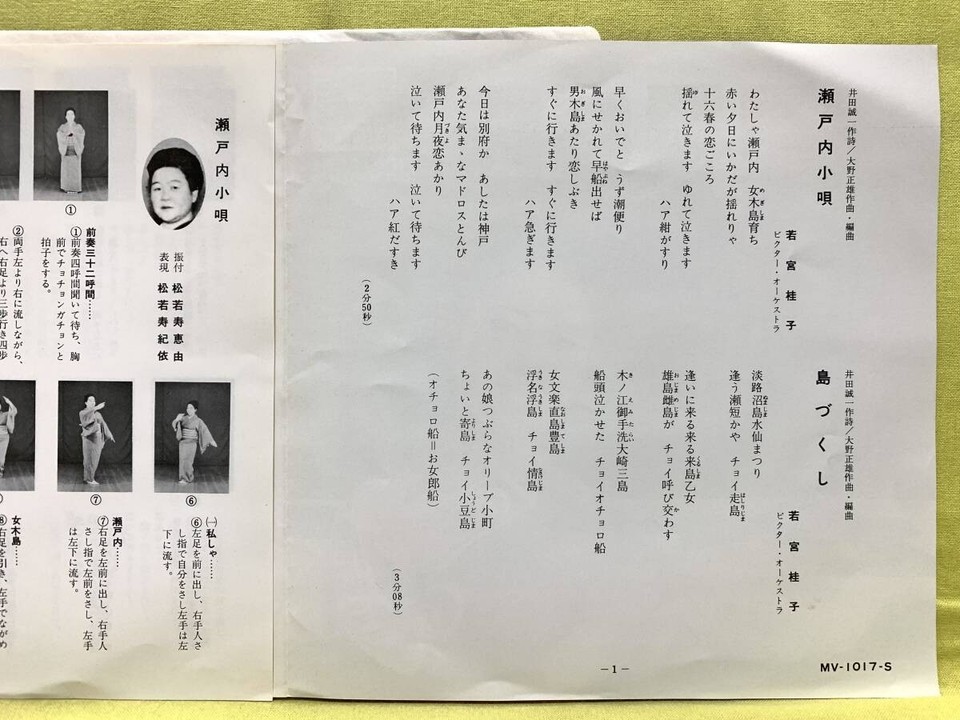 井田誠一作詩／大野正雄作曲・編曲
瀬戸内小唄
若宮桂子
ビクター・オーケストラ
わたしゃ瀬戸内　女木島育ち
赤い夕日にいかだが揺れりゃ
十六春の恋ごころ
揺れて泣きます　ゆれて泣きます
ハア紺がすり
早くおいでと　うず潮便り
風にせかれて早船出せば
男木島あたり恋しぶき
すぐに行きます　すぐに行きます
ハア急ぎます
今日は別府か　あしたは神戸
あなた気まゝなマドロスとんび
瀬戸内月夜恋あかり
泣いて待ちます　泣いて待ちます
ハア紅だすき
（2分50秒）
井田誠一作詩／大野正雄作曲・編曲
島づくし
若宮桂子
ビクター・オーケストラ
淡路沼島水仙まつり
逢う瀬短かや　チョイ走島
逢いに来る来る来島乙女
雄島雌島が　チョイ呼び交わす
木ノ江御手洗大崎三島
船頭泣かせた　チョイオチョロ船
女文楽直島豊島
浮名浮島　チョイ情島
あの娘つぶらなオリーブ小町
ちょいと寄島　チョイ小豆島
（オチョロ船＝お女郎船）
（3分08秒）
－1－
MV-1017-S
瀬戸内小唄
振付　松若寿恵由
表現　松若寿紀依
①
前奏三十二呼間……
①前奏四呼間聞いて待ち、胸
前でチョチョンガチョンと
拍子をする。
②両手左より右に流しながら、
右へ右足より三歩行き四歩
⑥
⑦
㈠私しゃ……
⑥左足を前に出し、右手人さ
し指で自分をさし左手は左
下に流す。
瀬戸内……
⑦右足を左前に出し、右手人
さし指で左前をさし、左手
は左下に流す。
女木島……
⑧右足を引き、左手でながめ